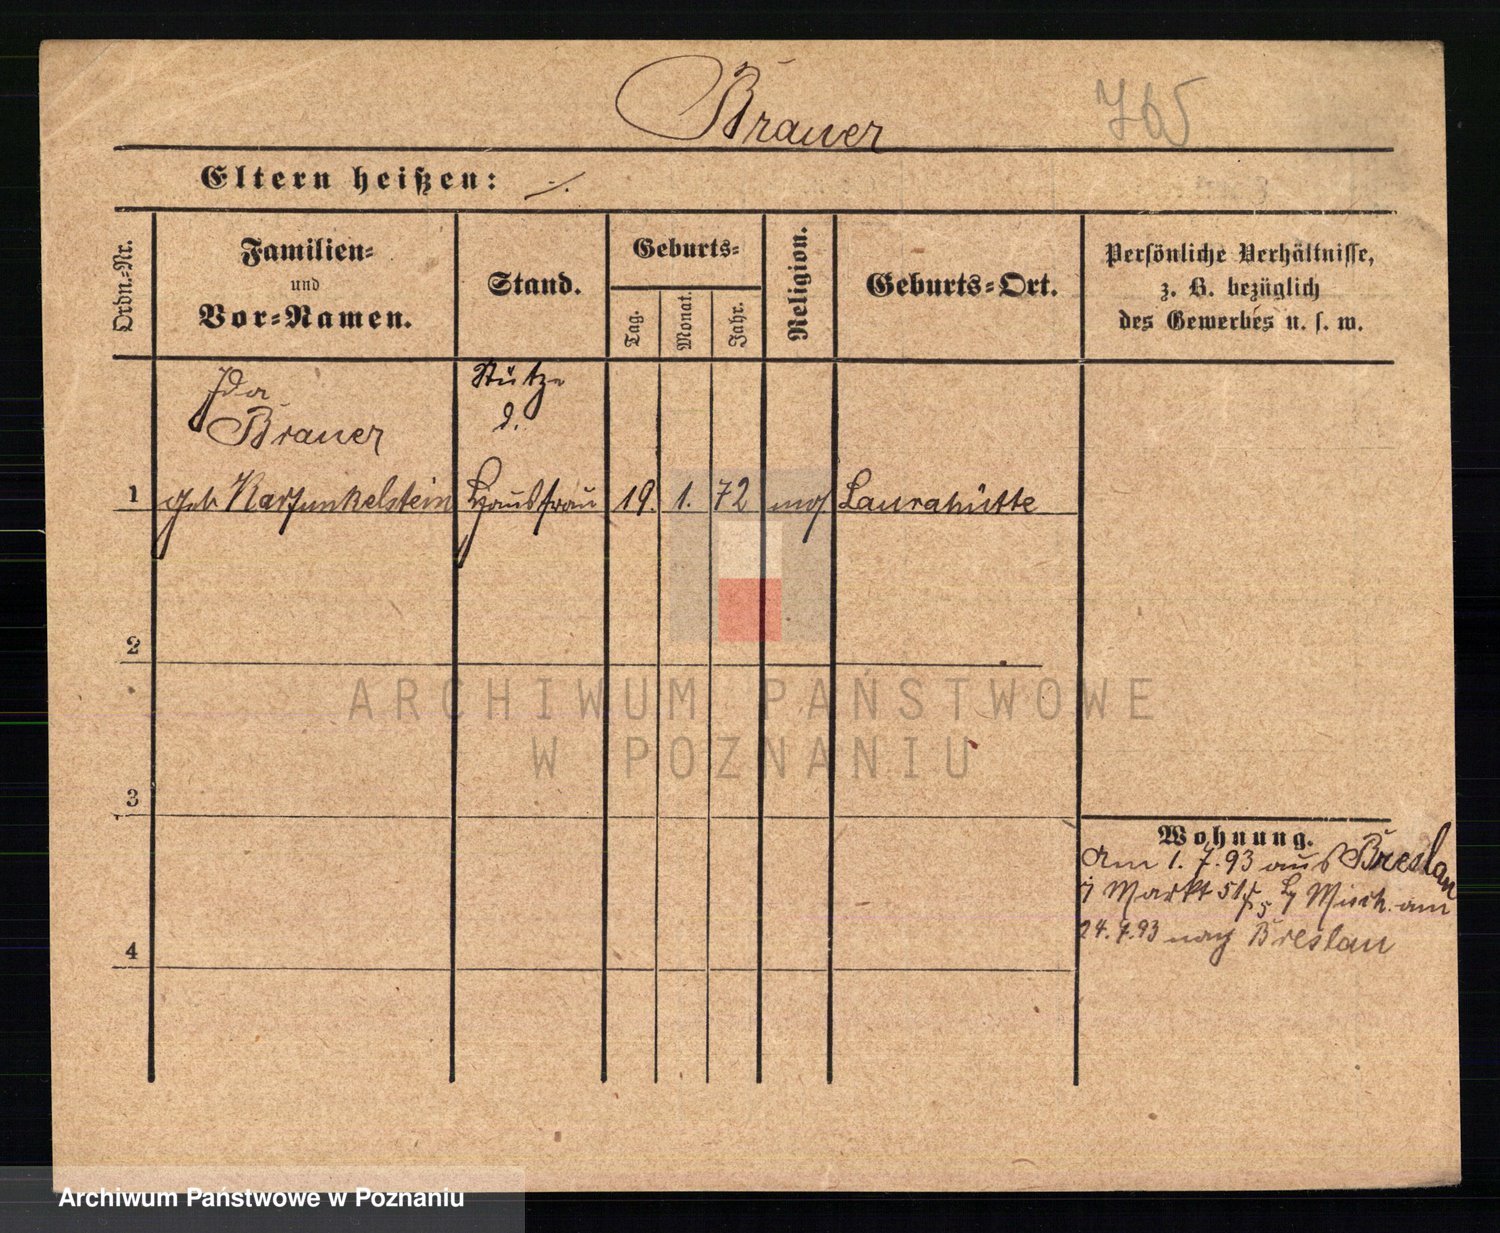 Brauer
765
Eltern heißen: ./.
Ordn.-Nr.
Familien-
und
Vor-Namen.
Stand.
Geburts-
Tag.
Monat.
Jahr.
Religion.
Geburts-Ort.
Persönliche Verhältnisse,
z. B. bezüglich
des Gewerbes u. s. w.
Ida
Brauer
1 geb Karfunkelstein
Stütze
d.
Hausfrau
19. 1. 72 mos Laurahütte
2
3
4
Wohnung.
Am 1. 7. 93 aus Breslau
Markt 51 Misch. am
24. 93 nach Breslau
ARCHIWUM PAŃSTWOWE
W POZNANIU
Archiwum Państwowe w Poznaniu